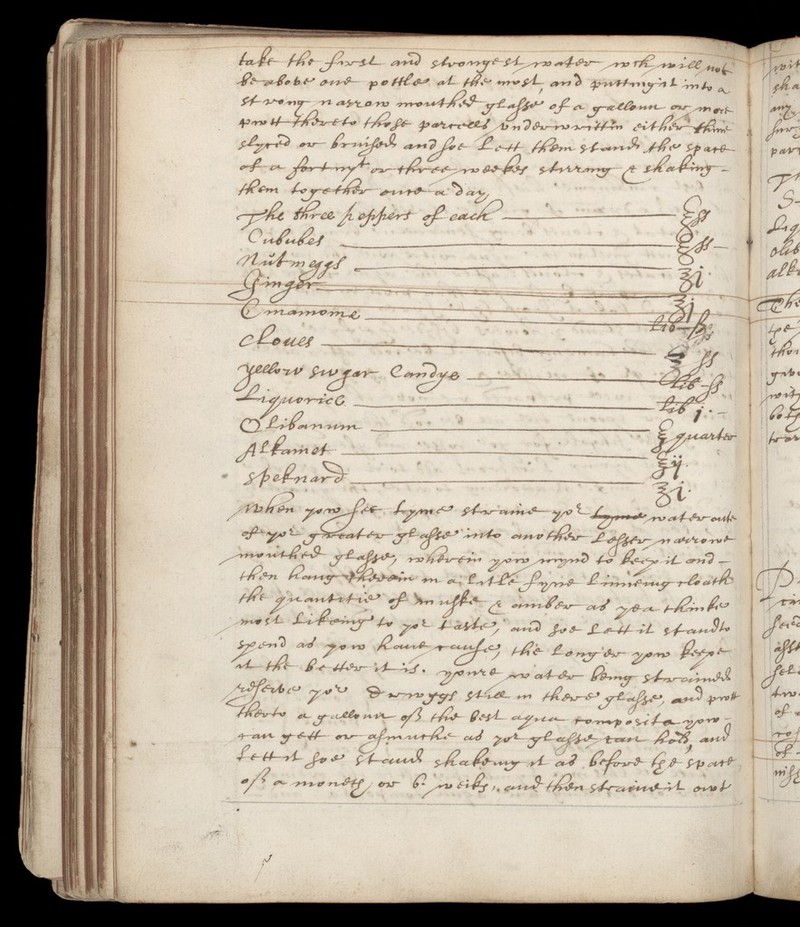 take the first and strongest water wch will not
be above one pottle at the most, and putting it into a
strong narrow mouthed glasse of a gallonn or more
putt thereto those parcells underwrittin either thinne
slyced or brused and soe Lett them stand the space
of a fortnyt or three weekes stirring & shaking
them together once a day,
The three peppers of each ʒss
Cububes ʒss
Nutmeggs ʒi
Ginger ʒi
Cinamome lib ss
Cloues ʒss
yellow sugar Candye lib ss
Liquorice lib j.
Olibanum quarter
Alkamet ʒij.
Speknard ʒi.
When yow see tyme straine yor tyme water oute
of yor greater glasse into another Lesser narrowe
mouthed glasse, wherein yow mynd to keep it and
then hang therein in a litle fyne linneing cloath
the quantitie of muske & amber as yea thinke
most likeing to yor taste, and soe Lett it stand to
spend as yow haue cause, the longer yow keepe
it the better it is. youre water being strained
reserve yor druggs still in there glasse, and putt
therto a gallonn off the best aqua composita yow
can gett or asmuche as yor glasse can hold, and
Lett it soe stand shakeing it as before the space
off a moneth, or 6. weiks, and then straine it owt